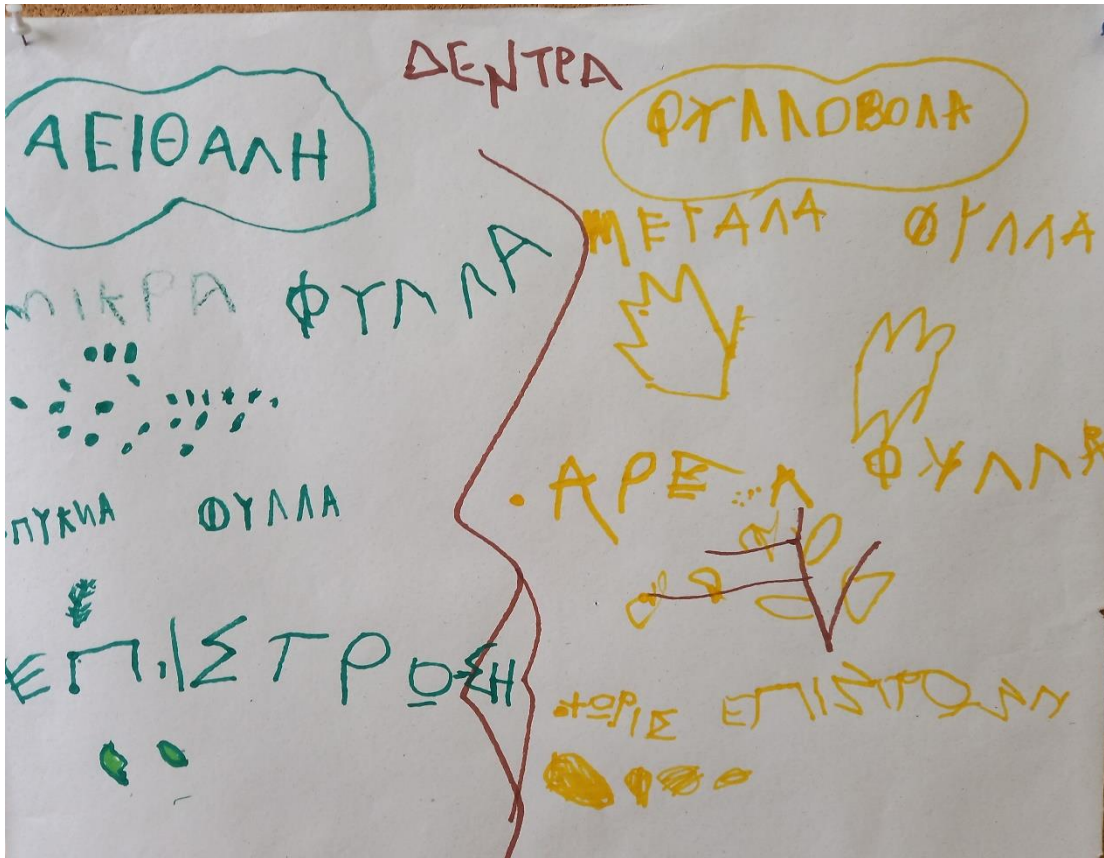 ΔΕΝΤΡΑ
ΑΕΙΘΑΛΗ
ΜΙΚΡΑ ΦΥΛΛΑ
ΠΥΚΝΑ ΦΥΛΛΑ
ΕΠΙΣΤΡΩΣΗ
ΦΥΛΛΟΒΟΛΑ
ΜΕΓΑΛΑ ΦΥΛΛΑ
ΑΡΕΑ ΦΥΛΛΑ
ΧΩΡΙΣ ΕΠΙΣΤΡΩΣΗ